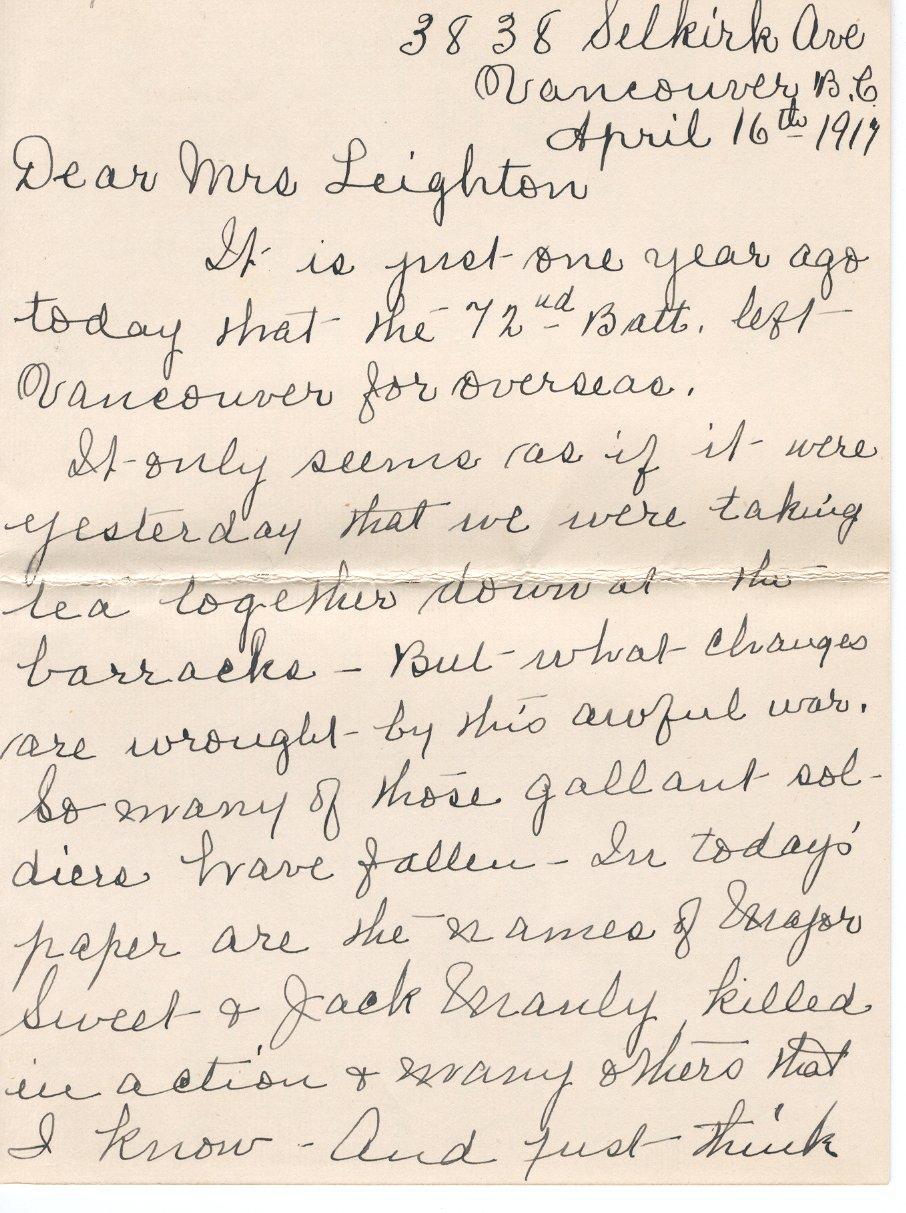 3838 Selkirk Ave
Vancouver B.C.
April 16th 1917
Dear Mrs Leighton
It is just one year ago
today that the 72nd Batt. left
Vancouver for overseas.
It only seems as if it were
yesterday that we were taking
tea together down at the
barracks - But what changes
are wrought by this awful war.
So many of those gallant sol-
diers have fallen - In todays'
paper are the names of Major
Sweet & Jack Manly, killed
in action & many others that
I know - And just think